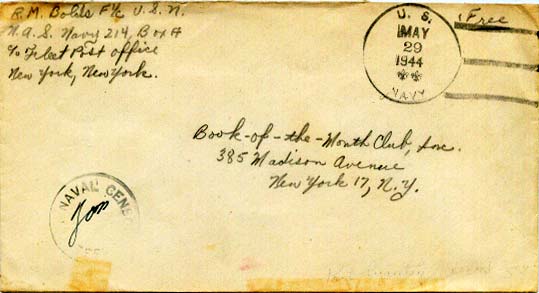 R.M. Bolds F 1/c U.S.N.
N.A.S. Navy 214, Box A
c/o Fleet Post Office
New York, New York.
U. S.
MAY
29
1944
NAVY
Free
Book-of-the-Month Club, Inc.
385 Madison Avenue
New York 17, N.Y.
NAVAL CENSO